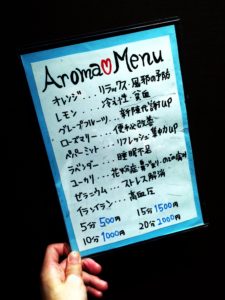 Aroma Menu
オレンジ...リラックス・風邪の予防
レモン....冷え性・貧血
グレープフルーツ...新陳代謝UP
ローズマリー...便秘改善
ペパーミント...リフレッシュ・集中力UP
ラベンダー....睡眠不足
ユーカリ....花粉症・鼻づまり・のどの痛み
ゼラニウム....ストレス解消
イランイラン....高血圧
5分 500円 15分 1500円
10分 1000円 20分 2000円